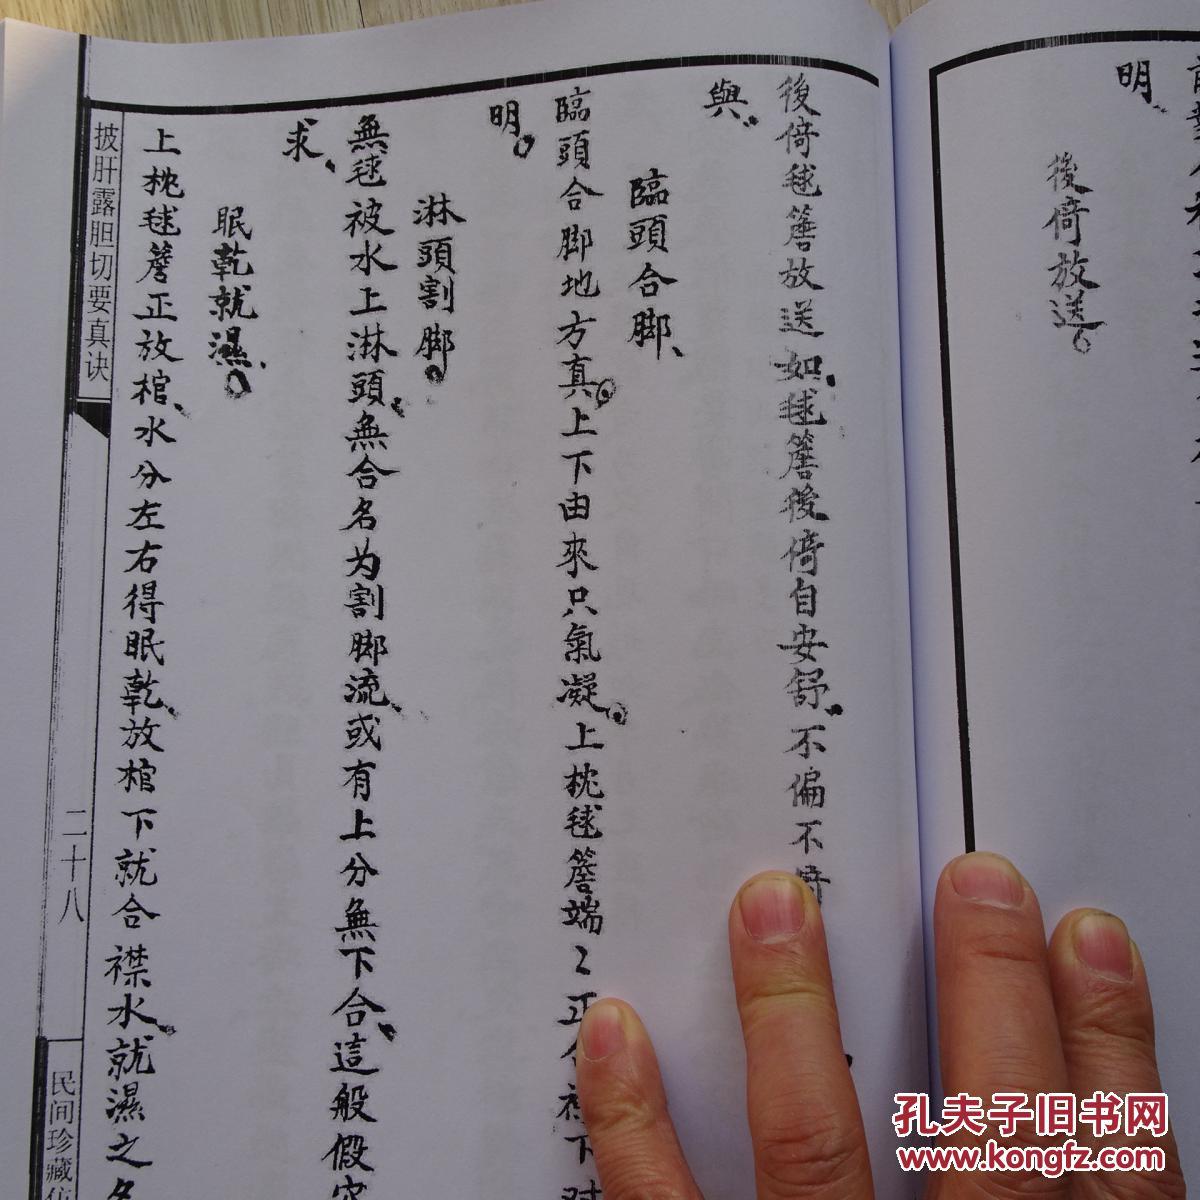 明、
後倚放送。
後倚毬簷放送如、毬簷後倚自安舒、不偏不倚
與、
臨頭合脚、
臨頭合脚地方真。上下由來只氣凝。上枕毬簷端〻正
明。
淋頭割脚。
無毬被水上淋頭、無合名为割脚流、或有上分無下合、這般假
求、
眠乾就濕。
上枕毬簷正放棺、水分左右得眠乾、放棺下就合襟水、就濕之名
披肝露胆切要真诀
二十八
民间珍藏
孔夫子旧书网
www.kongfz.com